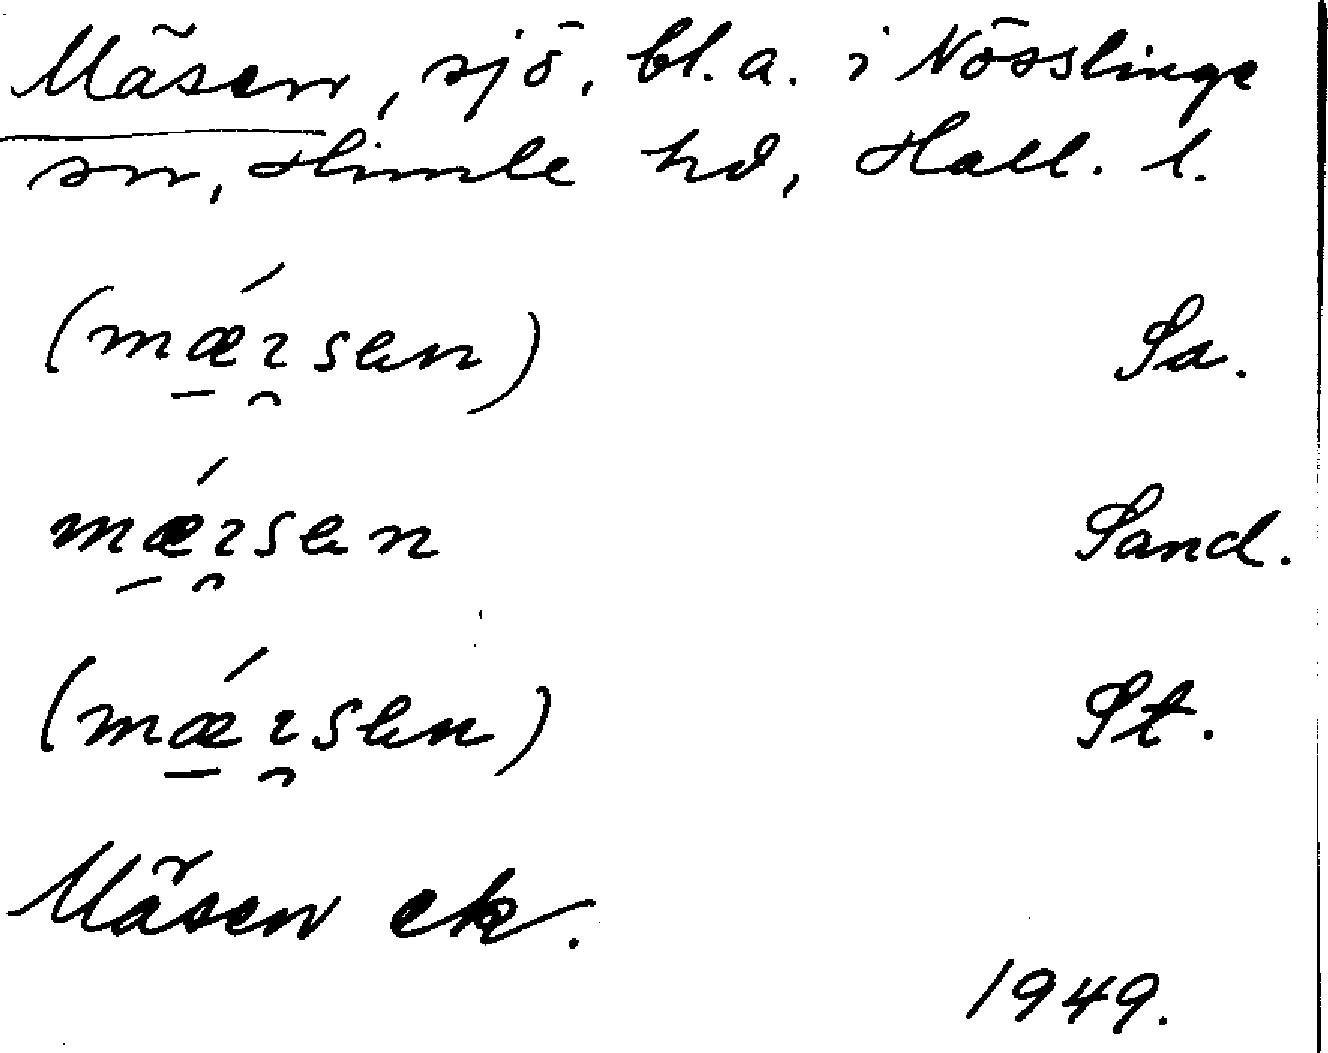 Mäsen, sjö, bl.a. i Nösslinge
sn, Himle hd, Hall. l.
(mǽ̱ɿ̯sen) Sa.
mǽ̱ɿ̯sen Sand.
(mǽ̱ɿ̯sen) St.
Mäsen ek.
1949.